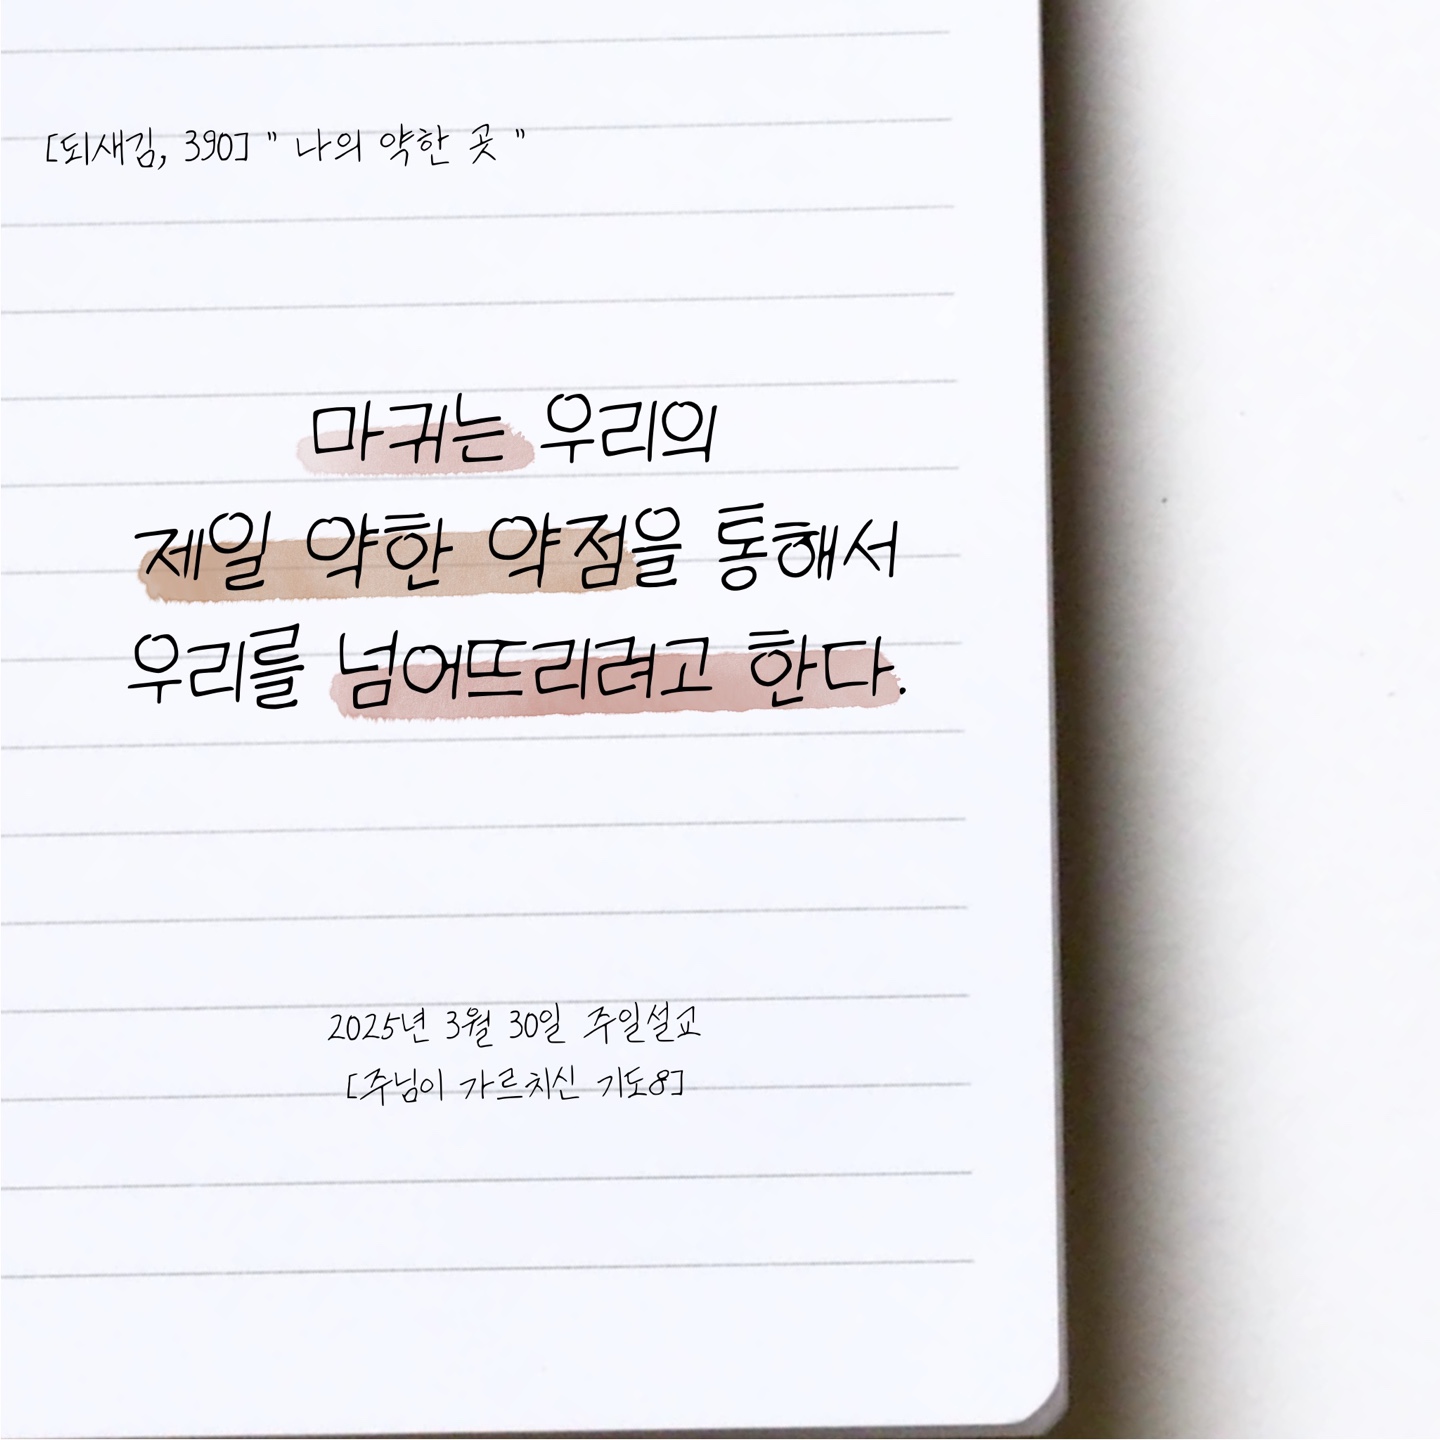 [되새김, 390] " 나의 약한 곳 "
마귀는 우리의
제일 약한 약점을 통해서
우리를 넘어뜨리려고 한다.
2025년 3월 30일 주일설교
[주님이 가르치신 기도8]